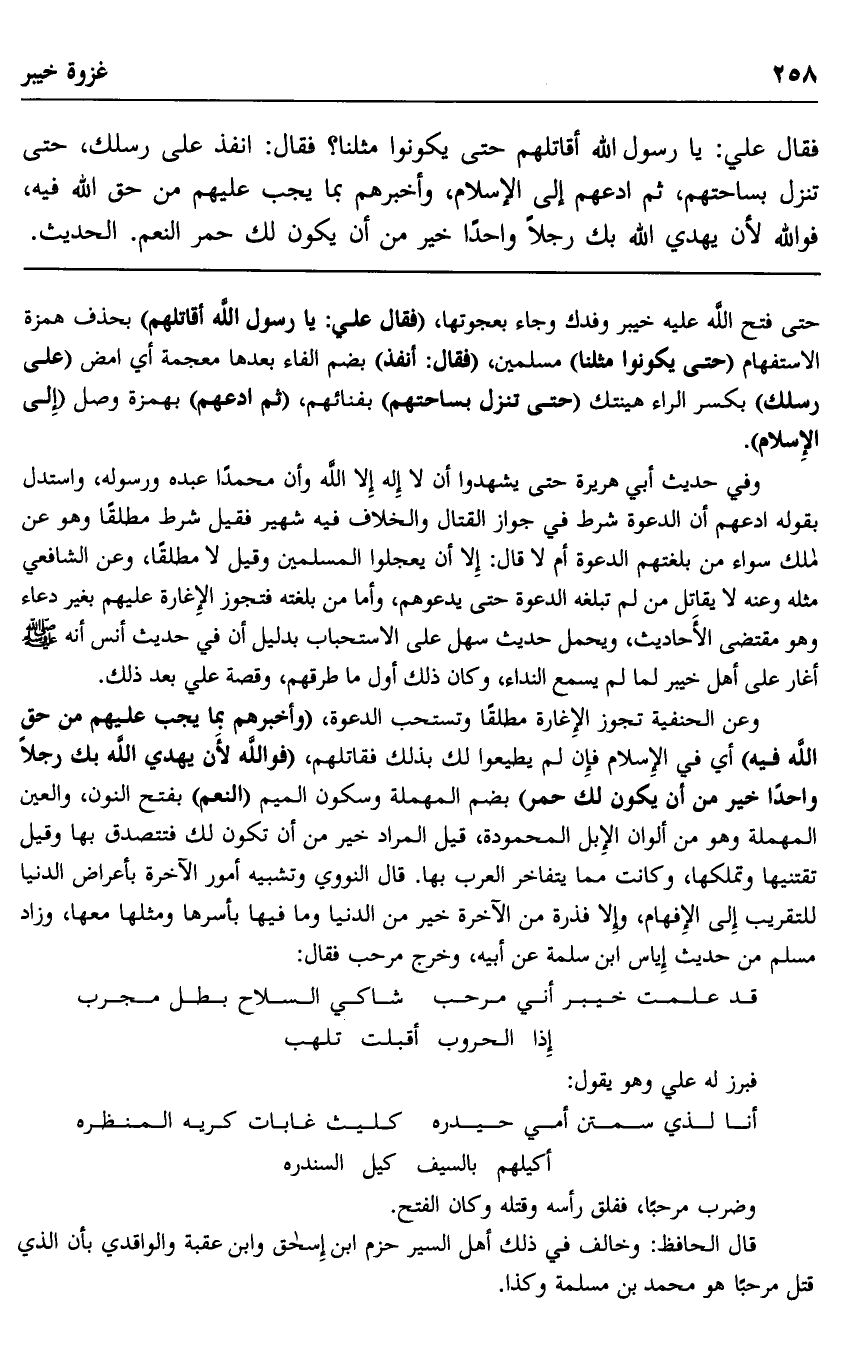 ٢٥٨
غزوة خيبر
فقال علي: يا رسول الله أقاتلهم حتى يكونوا مثلنا؟ فقال: انفذ على رسلك، حتى
تنزل بساحتهم، ثم ادعهم إلى الإسلام، وأخبرهم بما يجب عليهم من حق الله فيه،
فوالله لأن يهدي الله بك رجلاً واحدًا خير من أن يكون لك حمر النعم. الحديث.
حتى فتح اللَّه عليه خيبر وفدك وجاء بعجوتها، (فقال علي: يا رسول اللَّه أقاتلهم) بحذف همزة
الاستفهام (حتى يكونوا مثلنا) مسلمين، (فقال: أنفذ) بضم الفاء بعدها معجمة أي امض (على
رسلك) بكسر الراء هينتك (حتى تنزل بساحتهم) بفنائهم، (ثم ادعهم) بهمزة وصل (إلى
الإسلام).
وفي حديث أبي هريرة حتى يشهدوا أن لا إله إلا اللَّه وأن محمدًا عبده ورسوله، واستدل
بقوله ادعهم أن الدعوة شرط في جواز القتال والخلاف فيه شهير فقيل شرط مطلقًا وهو عن
لملك سواء من بلغتهم الدعوة أم لا قال: إلا أن يعجلوا المسلمين وقيل لا مطلقًا، وعن الشافعي
مثله وعنه لا يقاتل من لم تبلغه الدعوة حتى يدعوهم، وأما من بلغته فتجوز الإغارة عليهم بغير دعاء
وهو مقتضى الأحاديث، ويحمل حديث سهل على الاستحباب بدليل أن في حديث أنس أنه ﷺ
أغار على أهل خيبر لما لم يسمع النداء، وكان ذلك أول ما طرقهم، وقصة علي بعد ذلك.
وعن الحنفية تجوز الإغارة مطلقًا وتستحب الدعوة، (وأخبرهم بما يجب عليهم من حق
اللَّه فيه) أي في الإسلام فإن لم يطيعوا لك بذلك فقاتلهم، (فواللَّه لأن يهدي اللَّه بك رجلاً
واحدًا خير من أن يكون لك حمر) بضم المهملة وسكون الميم (النعم) بفتح النون، والعين
المهملة وهو من ألوان الإبل المحمودة، قيل المراد خير من أن تكون لك فتتصدق بها وقيل
تقتنيها وتملكها، وكانت مما يتفاخر العرب بها. قال النووي وتشبيه أمور الآخرة بأعراض الدنيا
للتقريب إلى الإفهام، وإلا فذرة من الآخرة خير من الدنيا وما فيها بأسرها ومثلها معها، وزاد
مسلم من حديث إياس ابن سلمة عن أبيه، وخرج مرحب فقال:
قد علمت خيبر أني مرحب شاكي السلاح بطل مجرب
إذا الحروب أقبلت تلهب
فبرز له علي وهو يقول:
أنا لذي سمتن أمي حيدره كليث غابات كريه المنظره
أكيلهم بالسيف كيل السندره
وضرب مرحبًا، ففلق رأسه وقتله وكان الفتح.
قال الحافظ: وخالف في ذلك أهل السير حزم ابن إسحٰق وابن عقبة والواقدي بأن الذي
قتل مرحبًا هو محمد بن مسلمة وكذا.